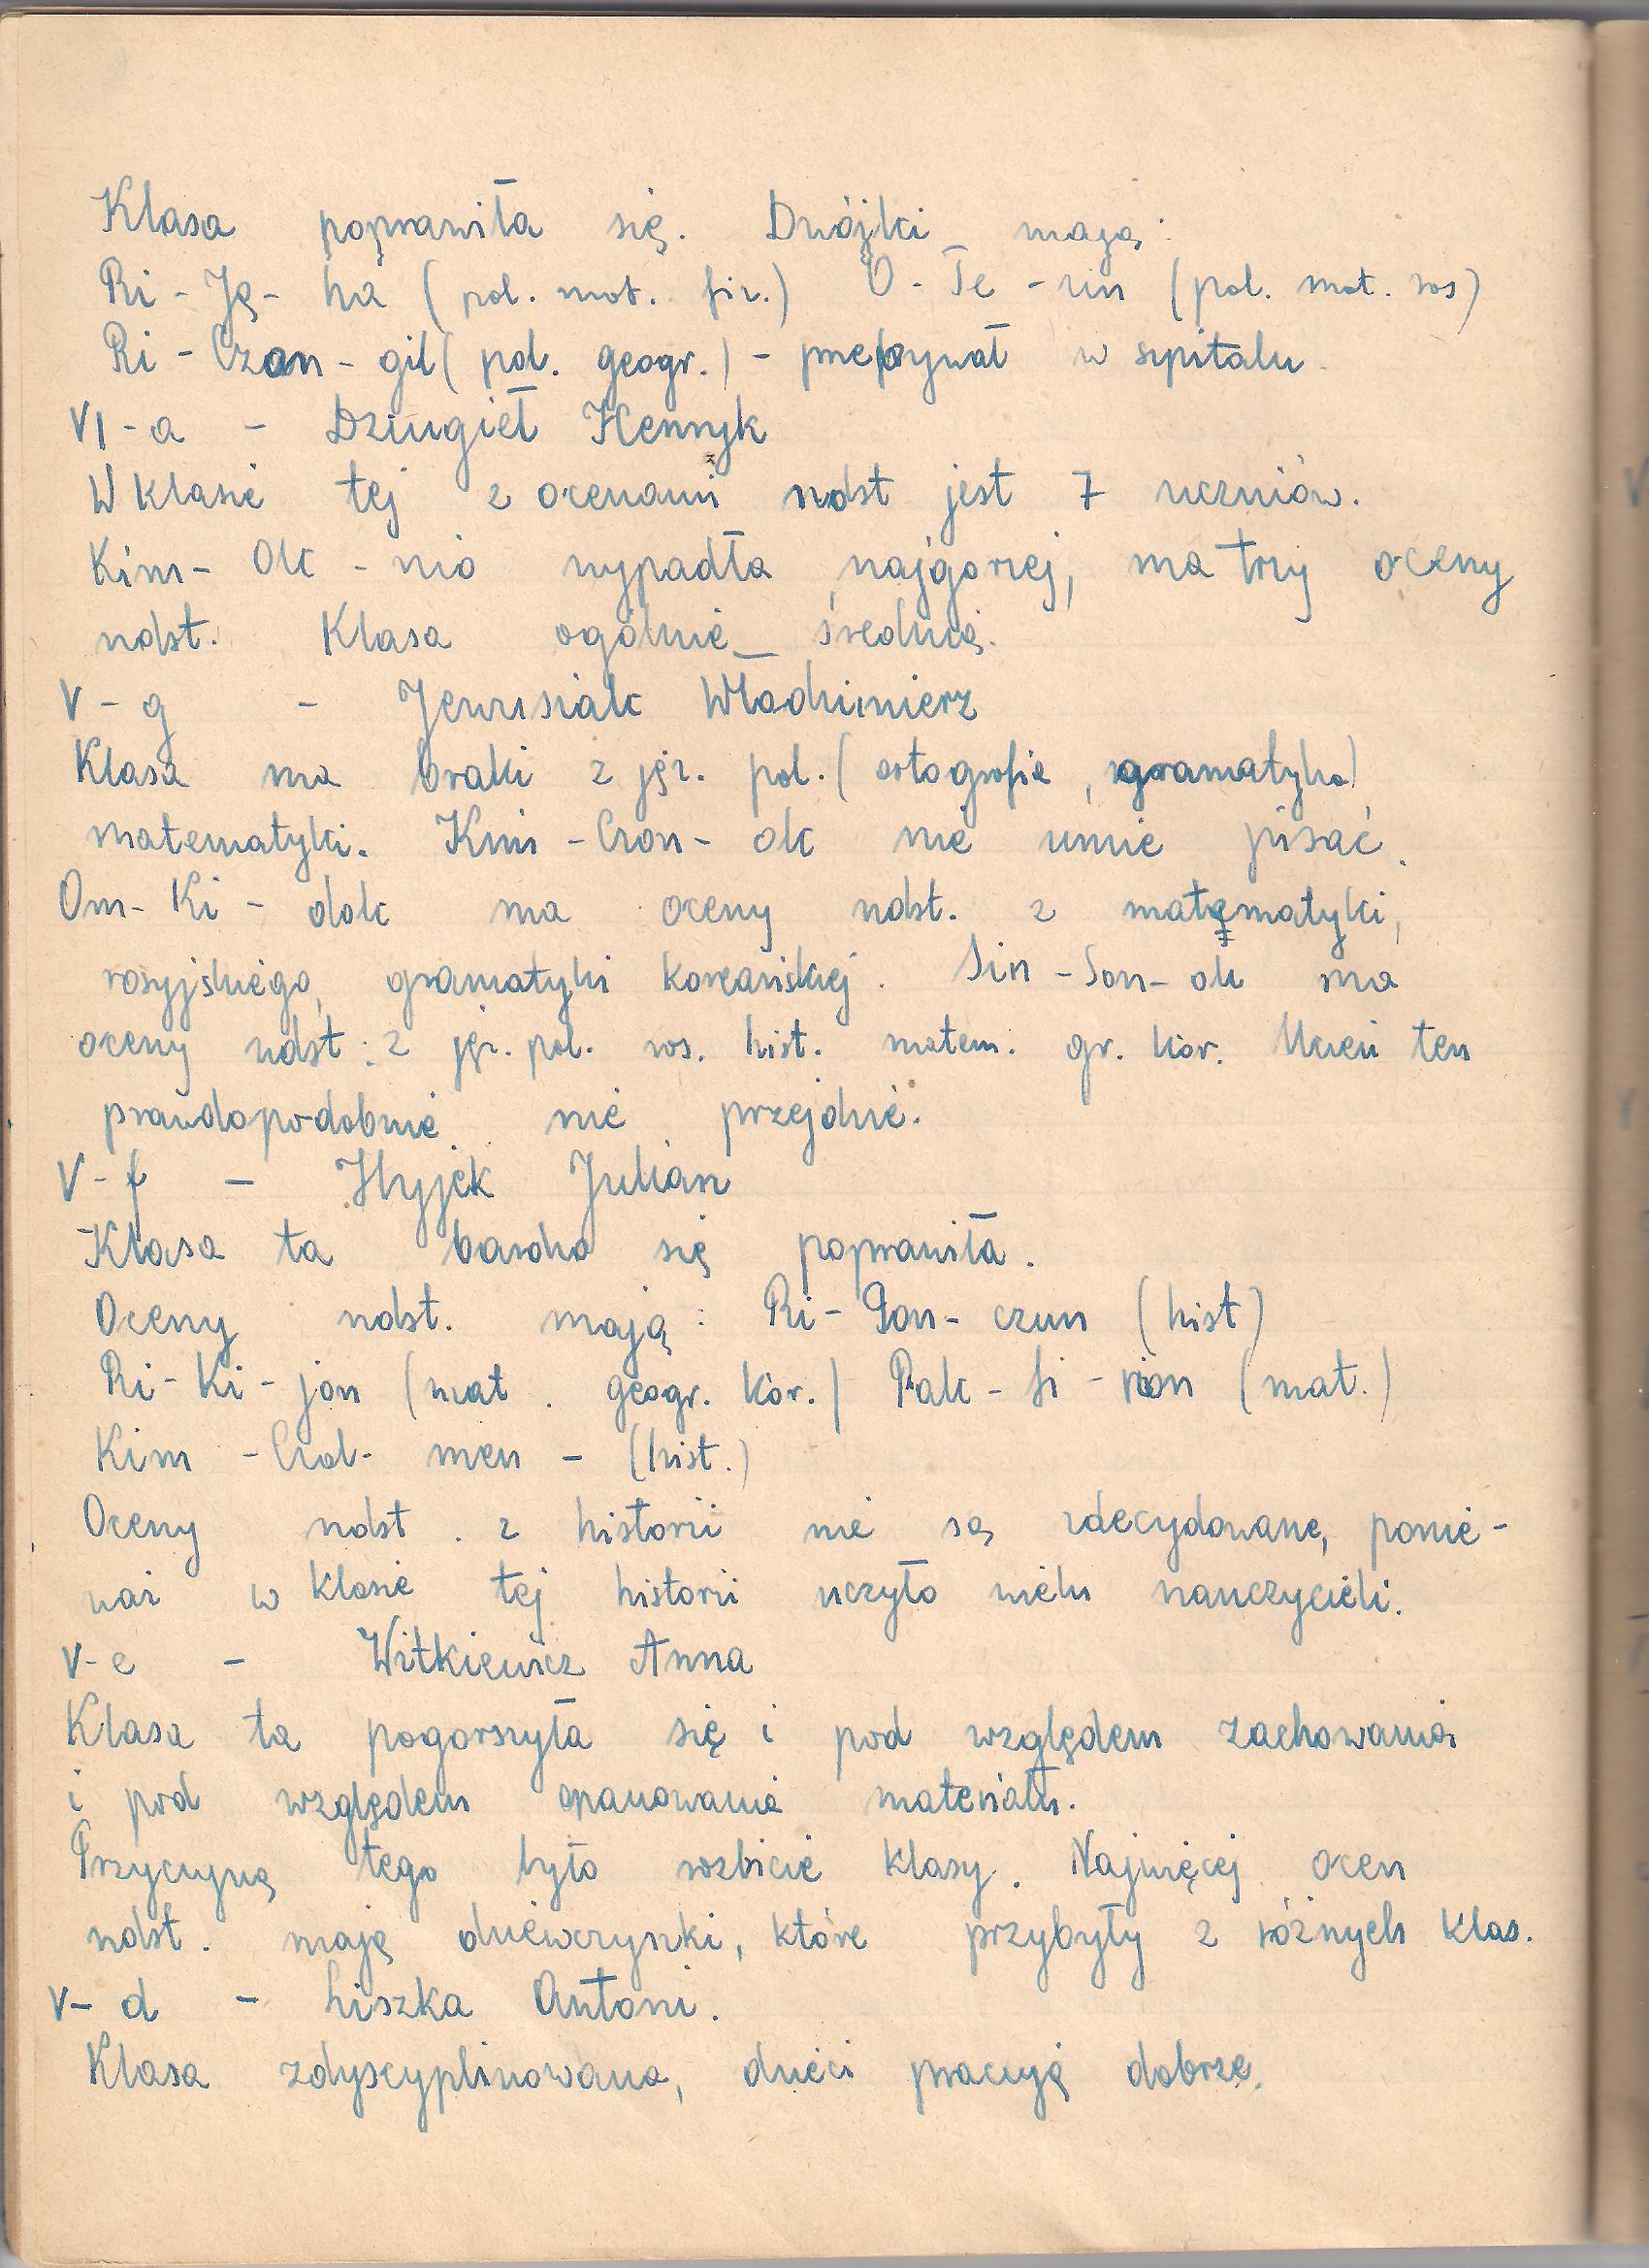 Klasa poprawiła się. Dwójki mają:
Ri - Ję - ha (pol. mat. fiz.) O - Te - un (pol. mat. ros)
Ri - Czan - gil (pol. geogr.) - przebywał w szpitalu.
VI - a - Dziugieł Henryk
W klasie tej z ocenami ndst jest 7 uczniów.
Kim - Ok - nio wypadła najgorzej, ma trzy oceny
ndst. Klasa ogólnie średnia.
V - g - Jewusiak Włodzimierz
Klasa ma braki z jęz. pol. (ortografia, gramatyka)
matematyki. Kim - Czon - ok nie umie pisać.
Om - Ki - dok ma oceny ndst. z matematyki,
rosyjskiego, gramatyki koreańskiej. Sin - Son - ok ma
oceny ndst: z jęz. pol. ros. hist. matem. gr. kor. Uczeń ten
prawdopodobnie nie przejdzie.
V - f - Hyjek Julian
Klasa ta bardzo się poprawiła.
Oceny ndst. mają: Ri - Gon - czun (hist)
Ri - Ki - jon (mat. geogr. kor.) Pak - Si - rion (mat.)
Kim - Czol - men - (hist.)
Oceny ndst. z historii nie są zdecydowane, ponie-
waż w klasie tej historii uczyło wielu nauczycieli.
V - e - Witkiewicz Anna
Klasa ta pogorszyła się i pod względem zachowania
i pod względem opanowania materiału.
Przyczyną tego było rozbicie klasy. Najwięcej ocen
ndst. mają dziewczynki, które przybyły z różnych klas.
V - d - Liszka Antoni.
Klasa zdyscyplinowana, dzieci pracują dobrze.